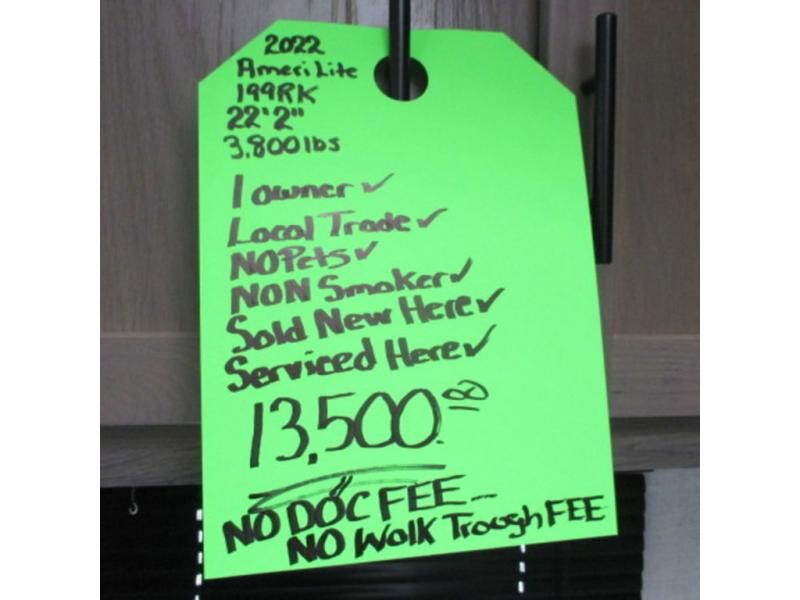 2022
Ameri Lite
199RK
22'2"
3,800 lbs
1 owner ✓
Local Trade ✓
NO Pets ✓
NON Smoker ✓
Sold New Here ✓
Serviced Here ✓
13,500.00
NO DOC FEE--
NO Walk Trough FEE